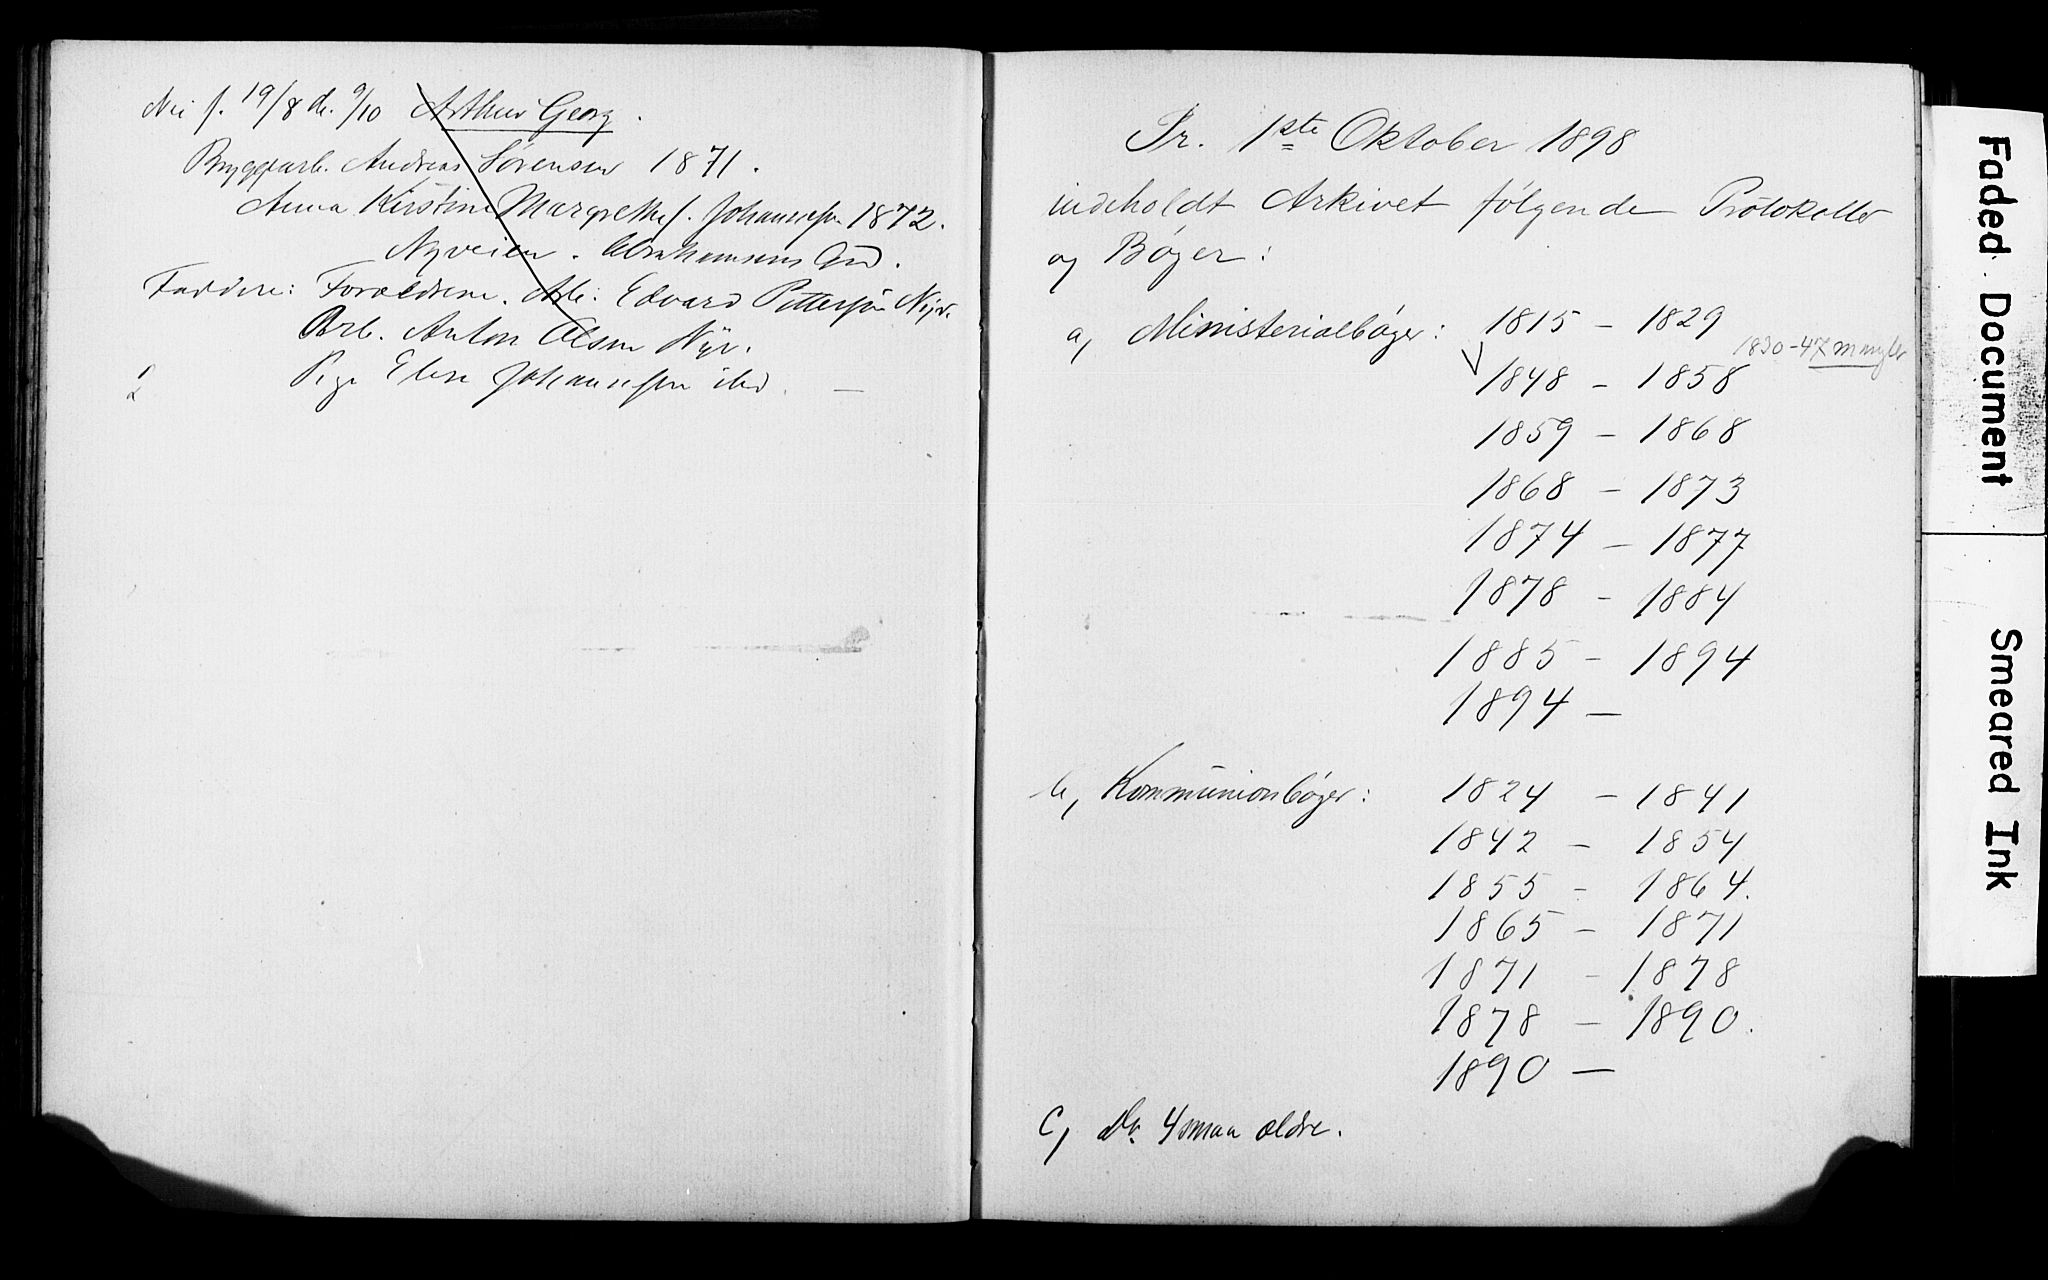 f. 19/8 d. 9/10 Arthur Georg.
Bryggearb. Andreas Sørensen 1871.
Anna Kirstine Margrethe f. Johannessen 1872.
Nyveien. Abrahamsens Grd.
Faddere: Forældrene. Arb: Edvard Pettersen Nyv.
Arb. Anton Olsen Nyv.
Pige Elen Johannessen ibd. —
Pr. 1ste Oktober 1898
indeholdt Arkivet følgende Protokoller
og Bøger:
a, Ministerialbøger: 1815 – 1829
1830–47 mangler
1848 – 1858
1859 – 1868
1868 – 1873
1874 – 1877
1878 – 1884
1885 – 1894
1894 —
b, Kommunionbøger: 1824 – 1841
1842 – 1854
1855 – 1864.
1865 – 1871
1871 – 1878
1878 – 1890.
1890 —
c, Do 4 smaa ældre.
Faded Document
Smeared Ink